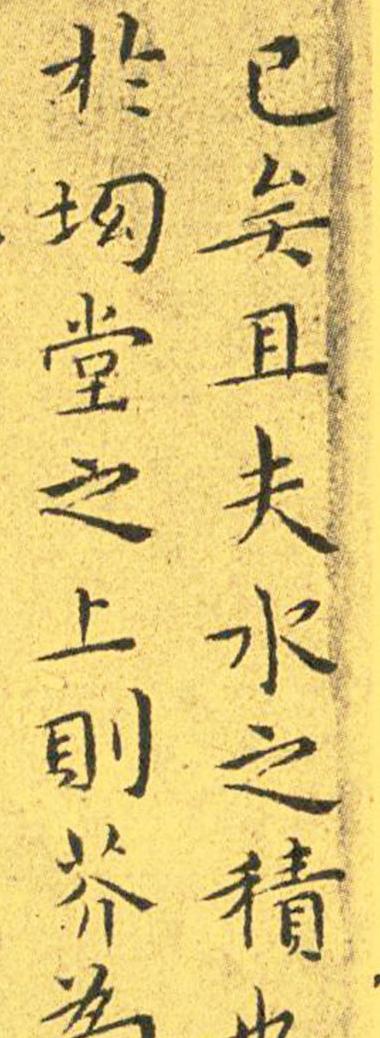 已矣且夫水之積也
於坳堂之上則芥為